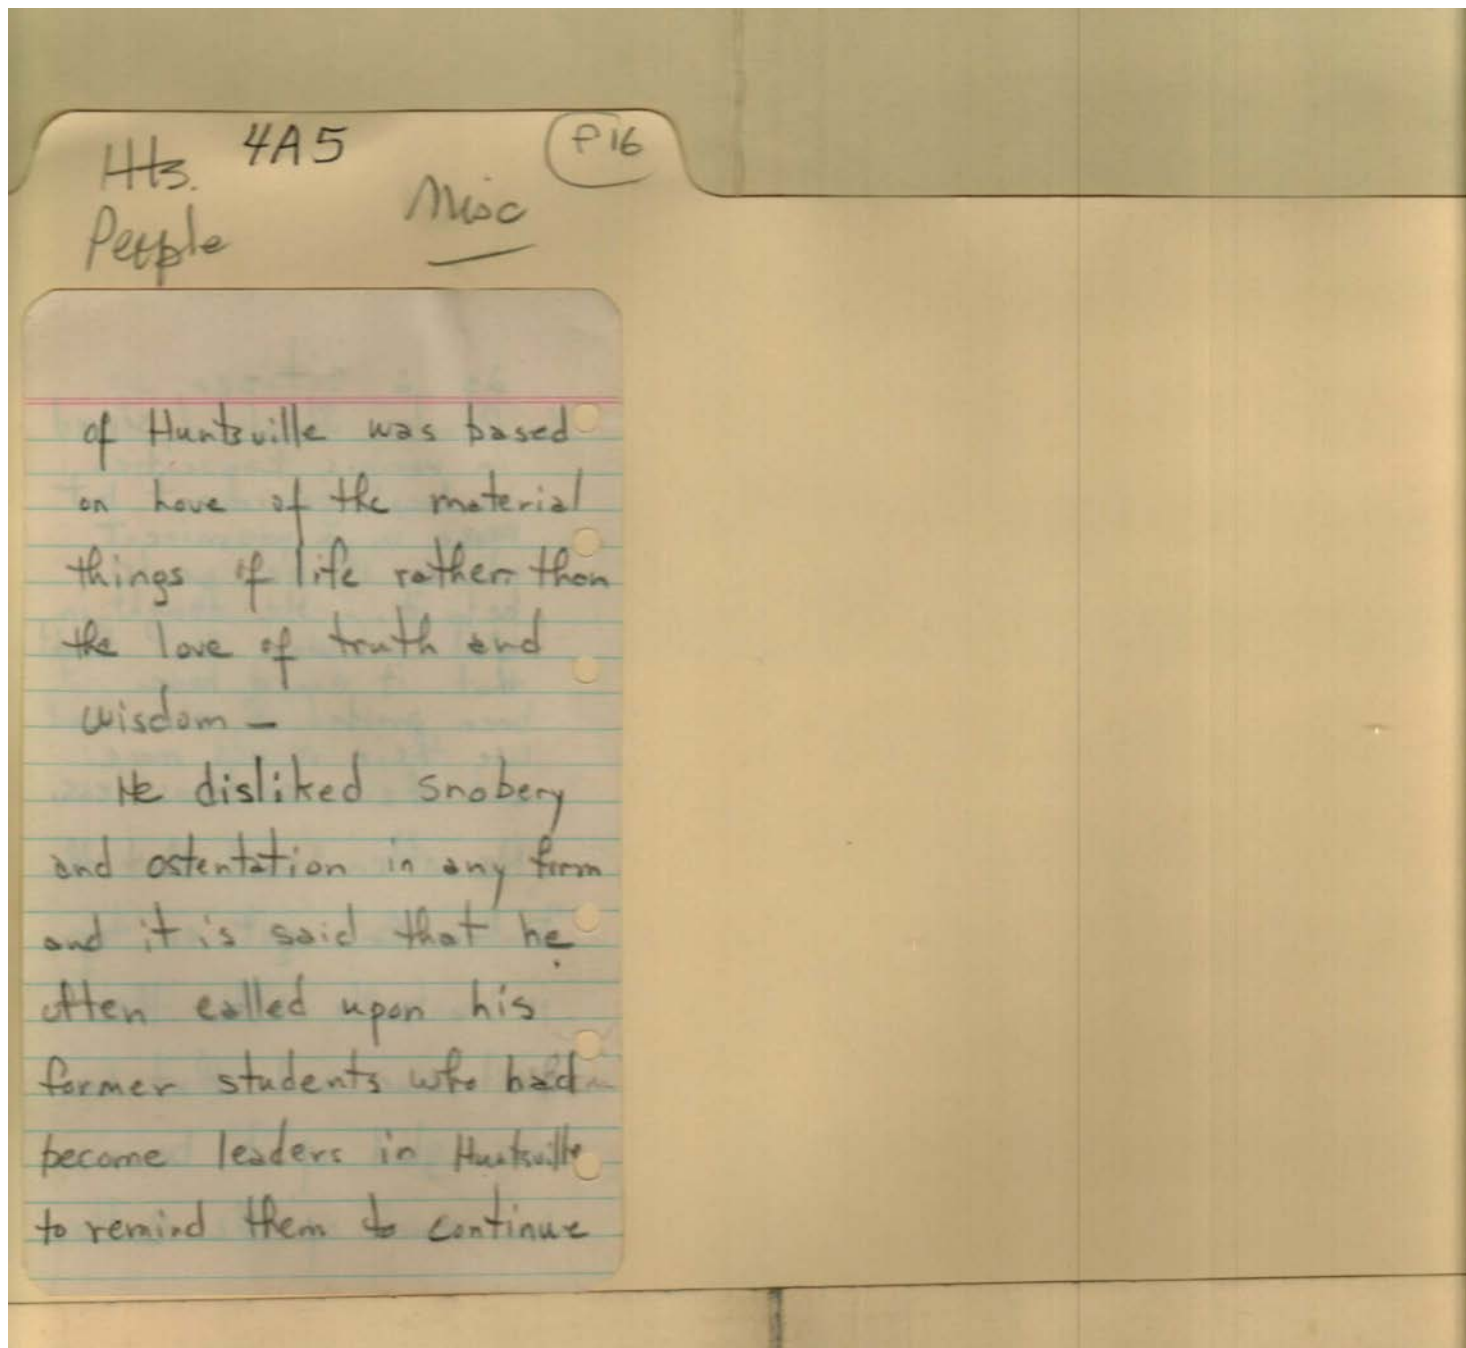 4A5
P16
Hts.
Misc
People
of Huntsville was based
on love of the material
things of life rather than
the love of truth and
wisdom —
He disliked snobery
and ostentation in any form
and it is said that he
often called upon his
former students who had
become leaders in Huntsville
to remind them to continue